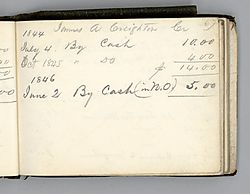 1844 James A Creighton Cr
July 4. By Cash 10.00
Oct 1845 " DO 4.00
$ 14.00
1846
June 2 By Cash (in N.O) 5.00